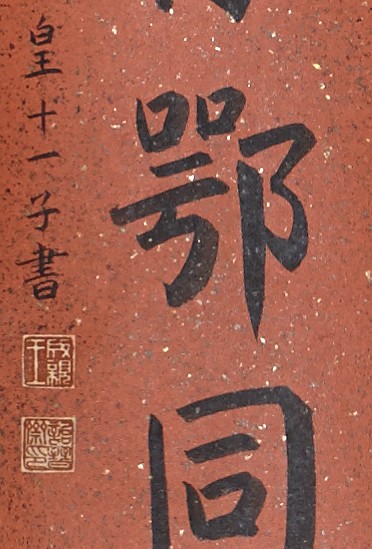 鄂同
皇十一子書
成親王
詒晉齋印